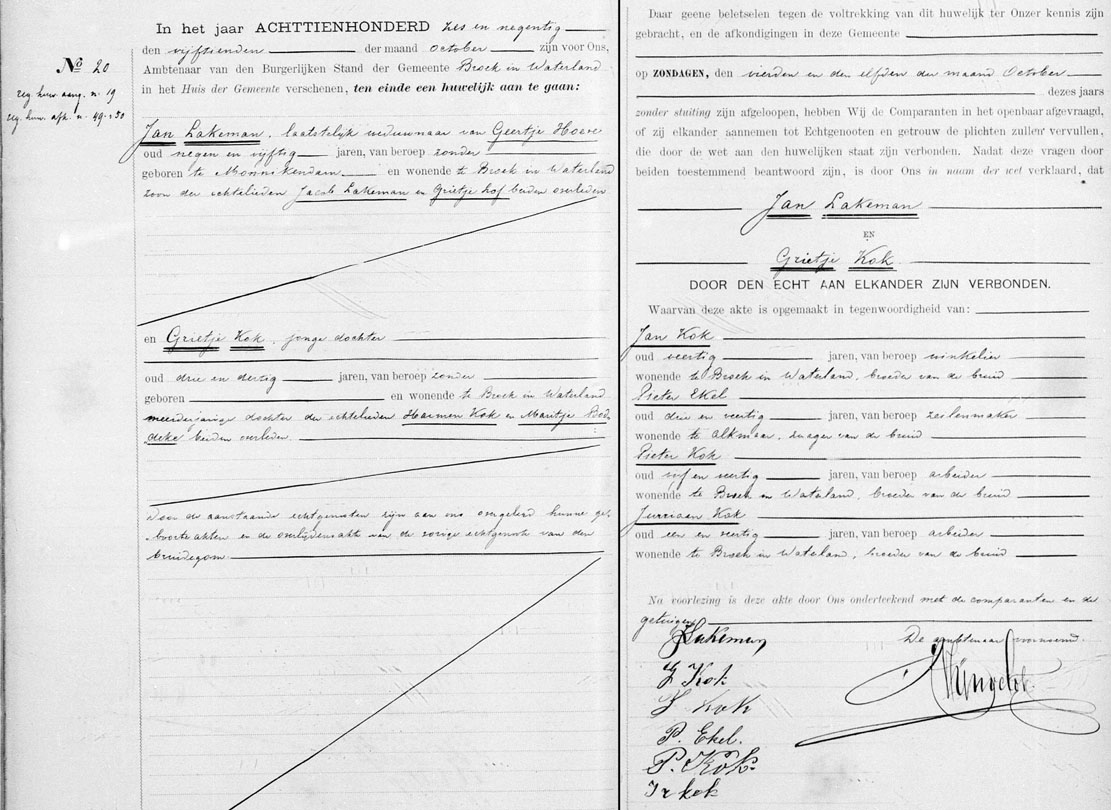 In het jaar ACHTTIENHONDERD zes en negentig
den vijftienden der maand October zijn voor Ons,
No 20
Ambtenaar van den Burgerlijken Stand der Gemeente Broek in Waterland
in het Huis der Gemeente verschenen, ten einde een huwelijk aan te gaan:
reg. huw. aang. n. 19
reg. huw. afk. n. 49 50
Jan Lakeman, laatstelijk weduwnaar van Geertje Hoeve
oud negen en vijftig jaren, van beroep zonder
geboren te Monnikendam en wonende te Broek in Waterland
zoon der echtelieden Jacob Lakeman en Grietje Hof beiden overleden
en Grietje Kok, jonge dochter
oud drie en dertig jaren, van beroep zonder
geboren en wonende te Broek in Waterland
meerderjarige dochter der echtelieden Harmen Kok en Maritje Boe-
deke beiden overleden.
Door de aanstaande echtgenooten zijn aan ons overgelegd hunne ge-
boorteakten en de overlijdensakte van de vorige echtgenoot van den
bruidegom
Daar geene beletselen tegen de voltrekking van dit huwelijk ter Onzer kennis zijn
gebracht, en de afkondigingen in deze Gemeente
op ZONDAGEN, den vierden en den elfden der maand October
dezes jaars
zonder stuiting zijn afgeloopen, hebben Wij de Comparanten in het openbaar afgevraagd,
of zij elkander aannemen tot Echtgenooten en getrouw de plichten zullen vervullen,
die door de wet aan den huwelijken staat zijn verbonden. Nadat deze vragen door
beiden toestemmend beantwoord zijn, is door Ons in naam der wet verklaard, dat
Jan Lakeman
EN
Grietje Kok
DOOR DEN ECHT AAN ELKANDER ZIJN VERBONDEN.
Waarvan deze akte is opgemaakt in tegenwoordigheid van:
Jan Kok
oud veertig jaren, van beroep winkelier
wonende te Broek in Waterland, broeder van de bruid
Pieter Ekel
oud drie en veertig jaren, van beroep zeilenmaker
wonende te Alkmaar, zwager van de bruid
Pieter Kok
oud vijf en veertig jaren, van beroep arbeider
wonende te Broek in Waterland, broeder van de bruid
Jurriaan Kok
oud een en veertig jaren, van beroep arbeider
wonende te Broek in Waterland, broeder van de bruid
Na voorlezing is deze akte door Ons onderteekend met de comparanten en de
getuigen
J Lakeman
De ambtenaar voornoemd.
G Kok
J Kok
P. Ekel.
P. Kok.
Jr kok